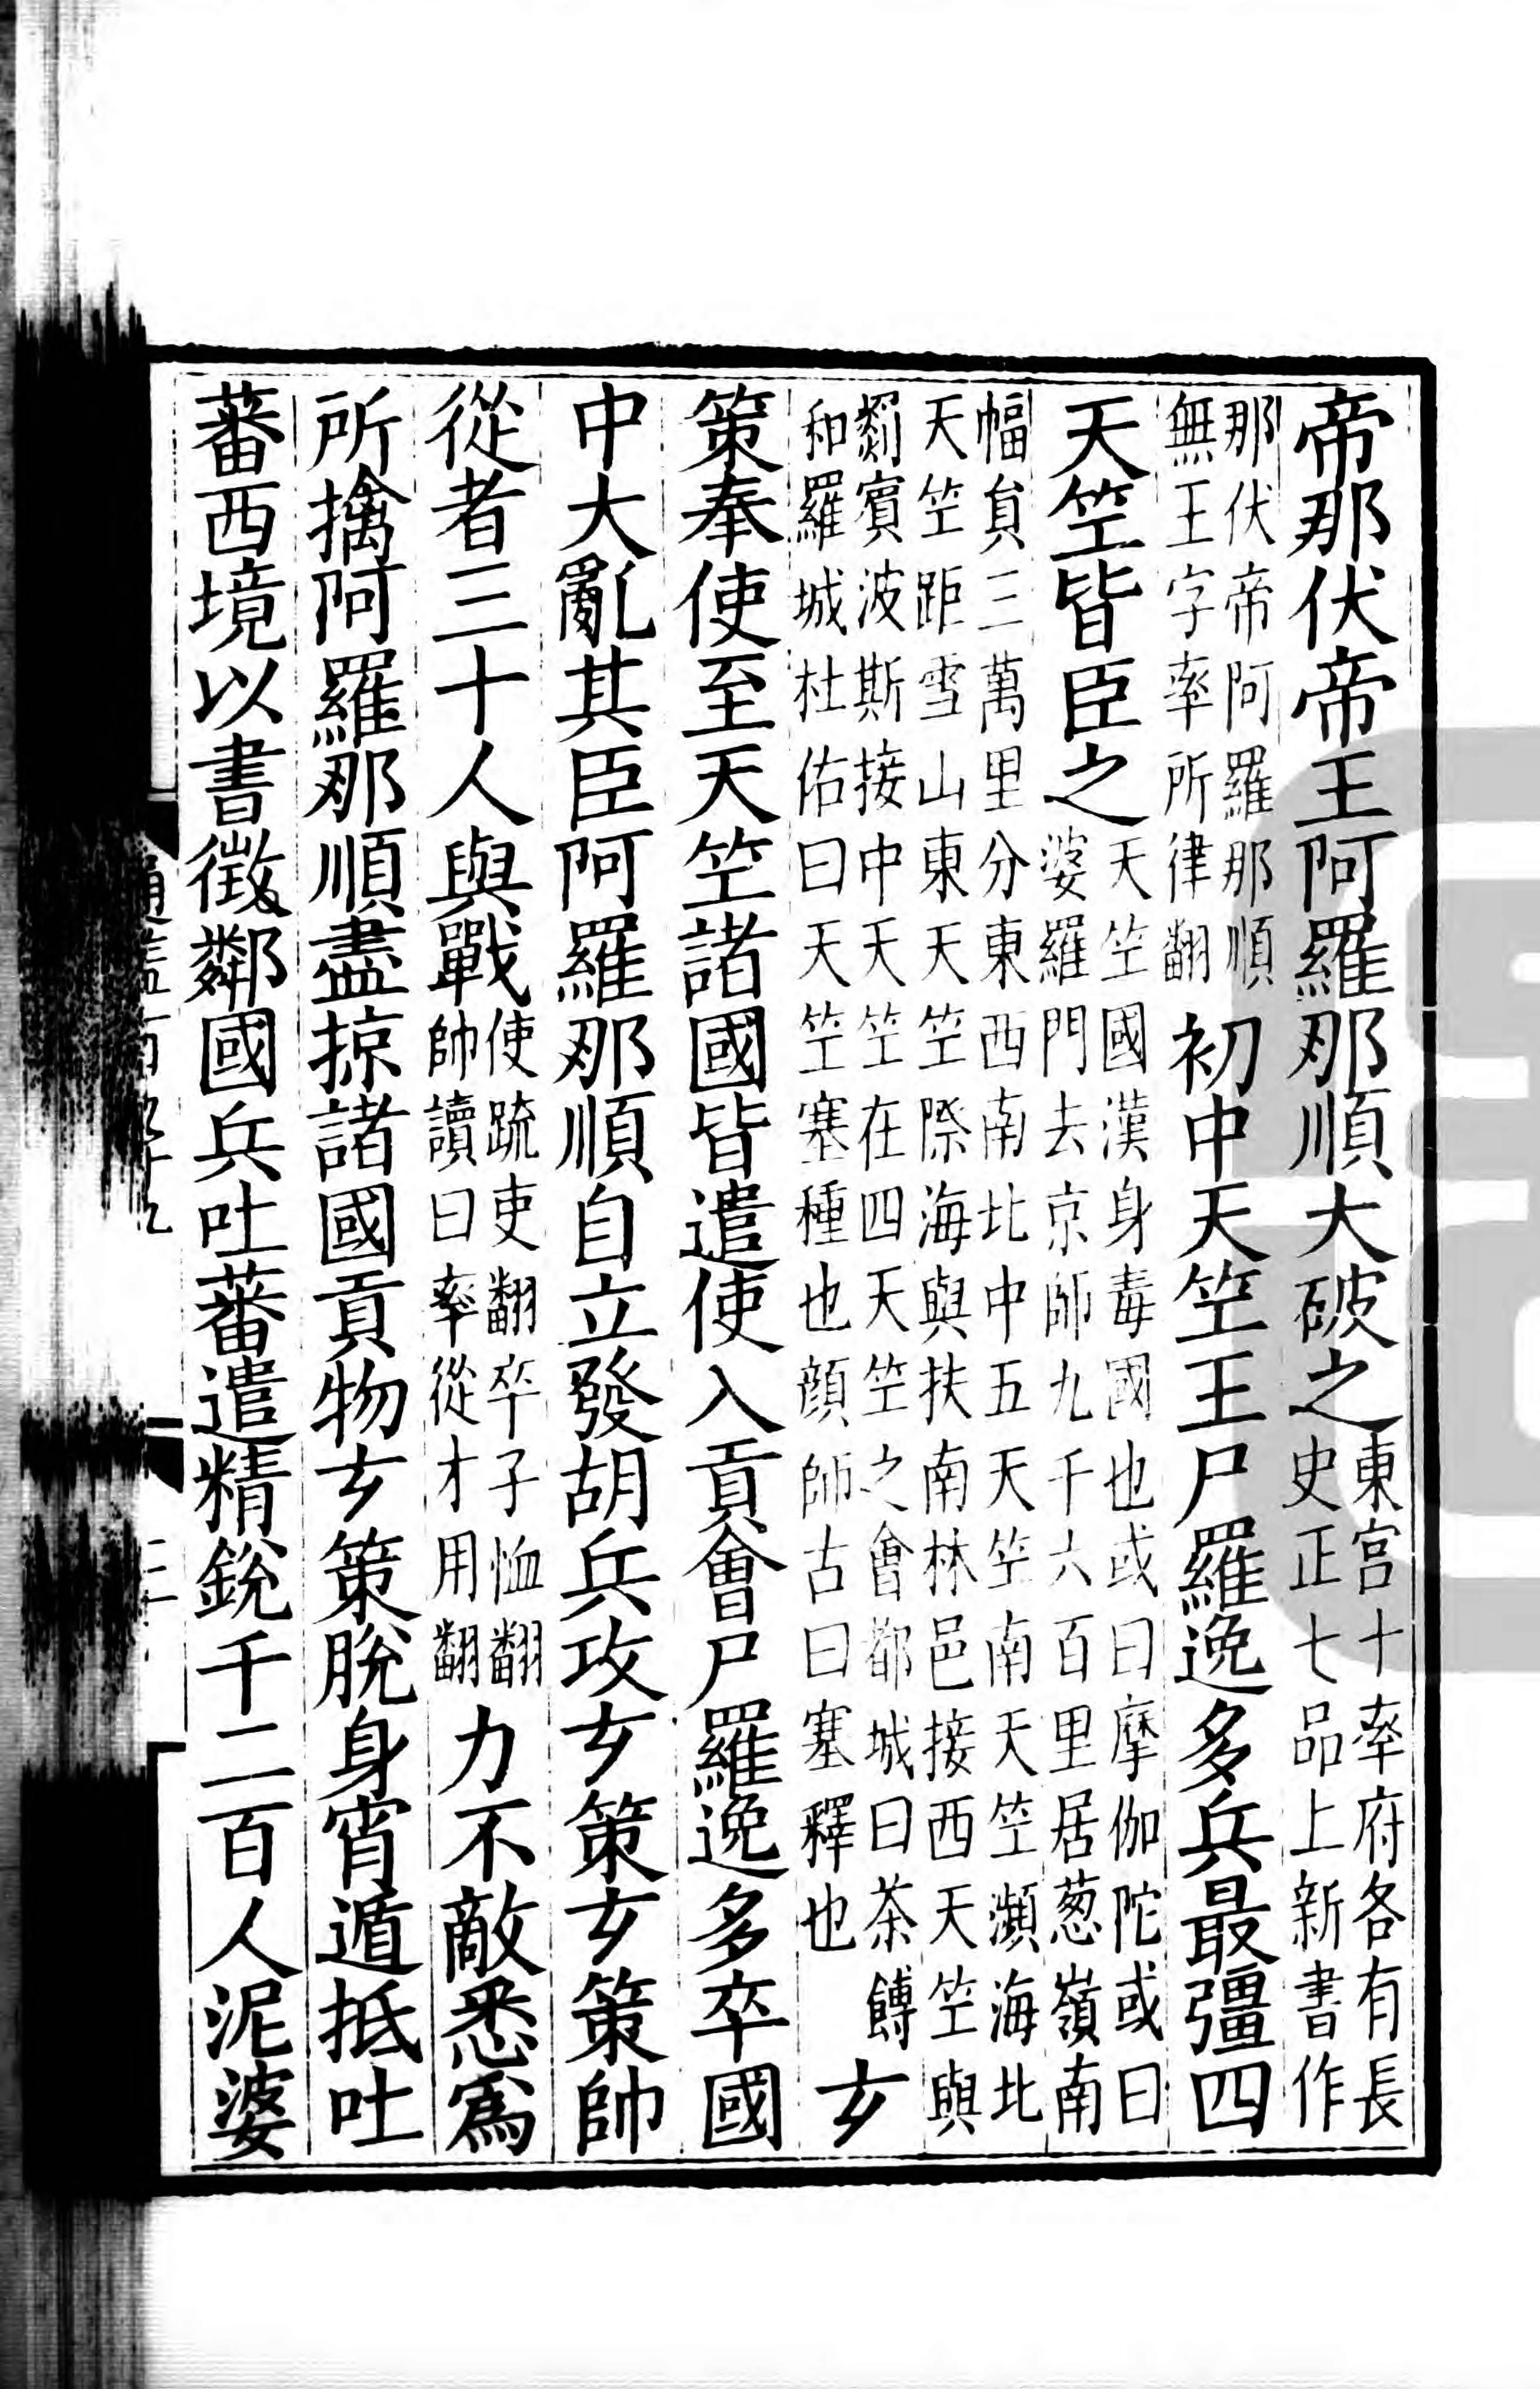 帝那伏帝王阿羅那順大破之東宮十率府各有長
史正七品上新書作
那伏帝阿羅那順
無王字率所律翻初中天竺王尸羅逸多兵最彊四
天竺皆臣之天竺國漢身毒國也或曰摩伽陀或曰
婆羅門去京師九千六百里居葱嶺南
幅員三萬里分東西南北中五天竺南天竺瀕海北
天竺距雪山東天竺際海與扶南林邑接西天竺與
罽賓波斯接中天竺在四天竺之會都城曰茶餺
和羅城杜佑曰天竺塞種也顔師古曰塞釋也玄
策奉使至天竺諸國皆遣使入貢會尸羅逸多卒國
中大亂其臣阿羅那順自立發胡兵攻玄策玄策帥
從者三十人與戰使疏吏翻卒子恤翻
帥讀曰率從才用翻力不敵悉爲
所擒阿羅那順盡掠諸國貢物玄策脫身宵遁抵吐
蕃西境以書徵鄰國兵吐蕃遣精銳千二百人泥婆